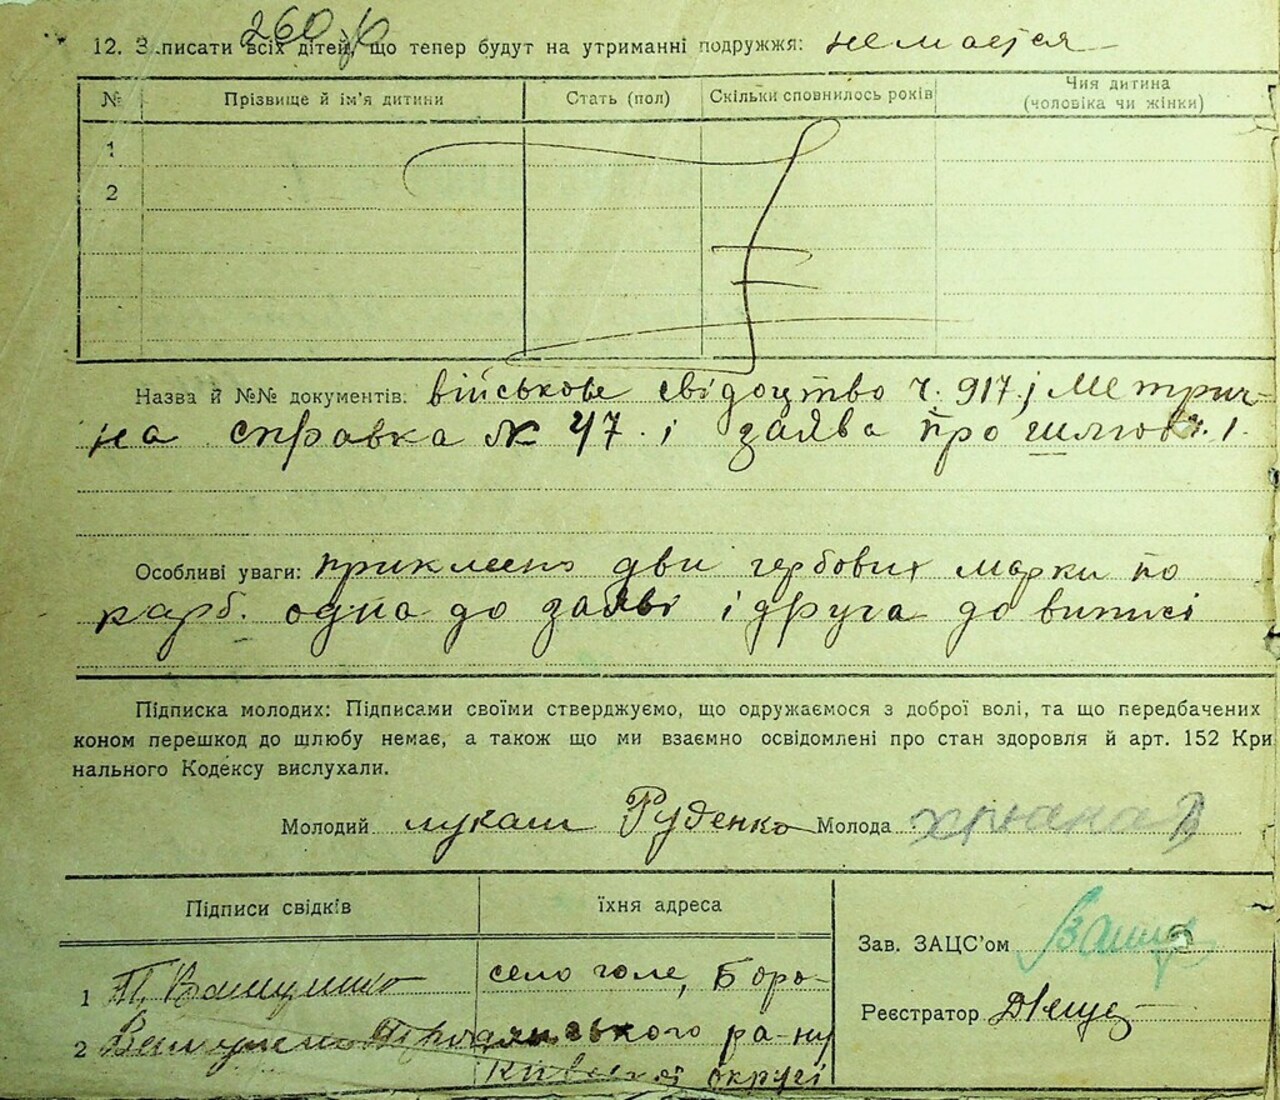 260
12. Записати всіх дітей, що тепер будут на утриманні подружжя: немается
№ Прізвище й ім'я дитини Стать (пол) Скільки сповнилось років Чия дитина (чоловіка чи жінки)
1
2
Назва й №№ документів: військове свідоцтво ч. 917.; метрич-
на справка № 47. і заява про шлюб ч. 1.
Особливі уваги: приклеено дви гербових марки по
карб. одна до заяві і друга до виписі
Підписка молодих: Підписами своїми стверджуємо, що одружаємося з доброї волі, та що передбачених
коном перешкод до шлюбу немає, а також що ми взаємно освідомлені про стан здоровля й арт. 152 Кри
нального Кодексу вислухали.
Молодий лукаш Руденко Молода
Підписи свідків їхня адреса
Зав. ЗАЦС'ом
1 село голе, Боро-
Реєстратор
2 дянського ра-ну
Київської округі